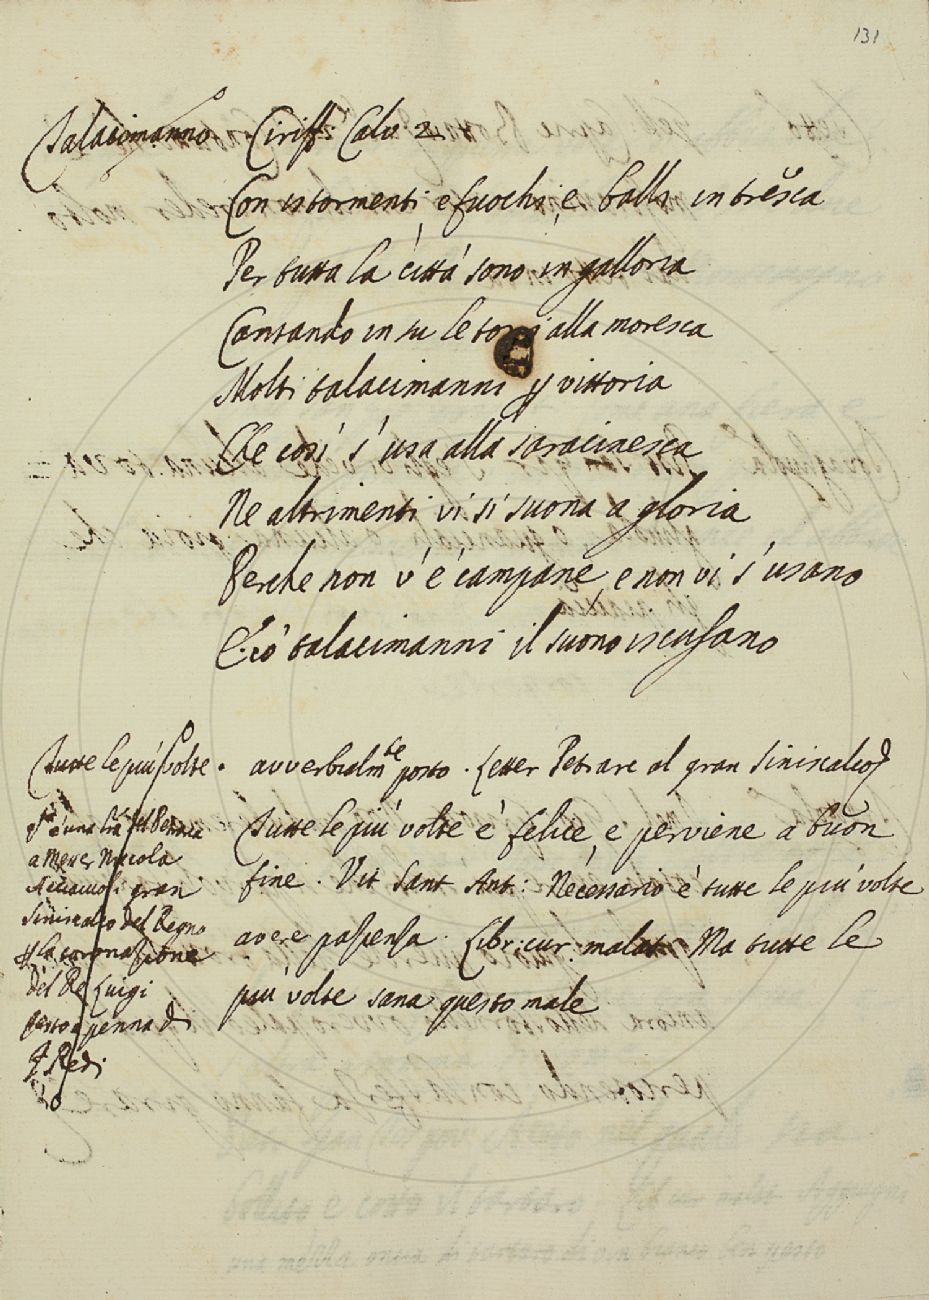 131
Talacimanno Ciriff. Calv. 2.
Con istormenti, e fuochi, e balli in trésca
Per tutta la città sono in galloria
Cantando in su le torri alla moresca
Molti talacimanni p vittoria
Che così s'usa alla saracinesca
Ne altrimenti vi si suona a gloria
Perche non v'è campane, e non vi s'usano
E i talacimanni il suono iscusano
Tutte le più volte. avverbialm.te posto. Letter Petrarc al gran siniscalco
Tutte le più volte è felice, e perviene a buon
fine. Vit Sant Ant: Necessario è tutte le più volte
avere pazienza. Libr: cur: malat. Ma tutte le
più volte sana questo male
è una del Petrarca
a Messer Niccola
Acciaiuoli gran
Siniscalco del Regno
p la coronazione
del Re Luigi
testo a penna di
F. Redi